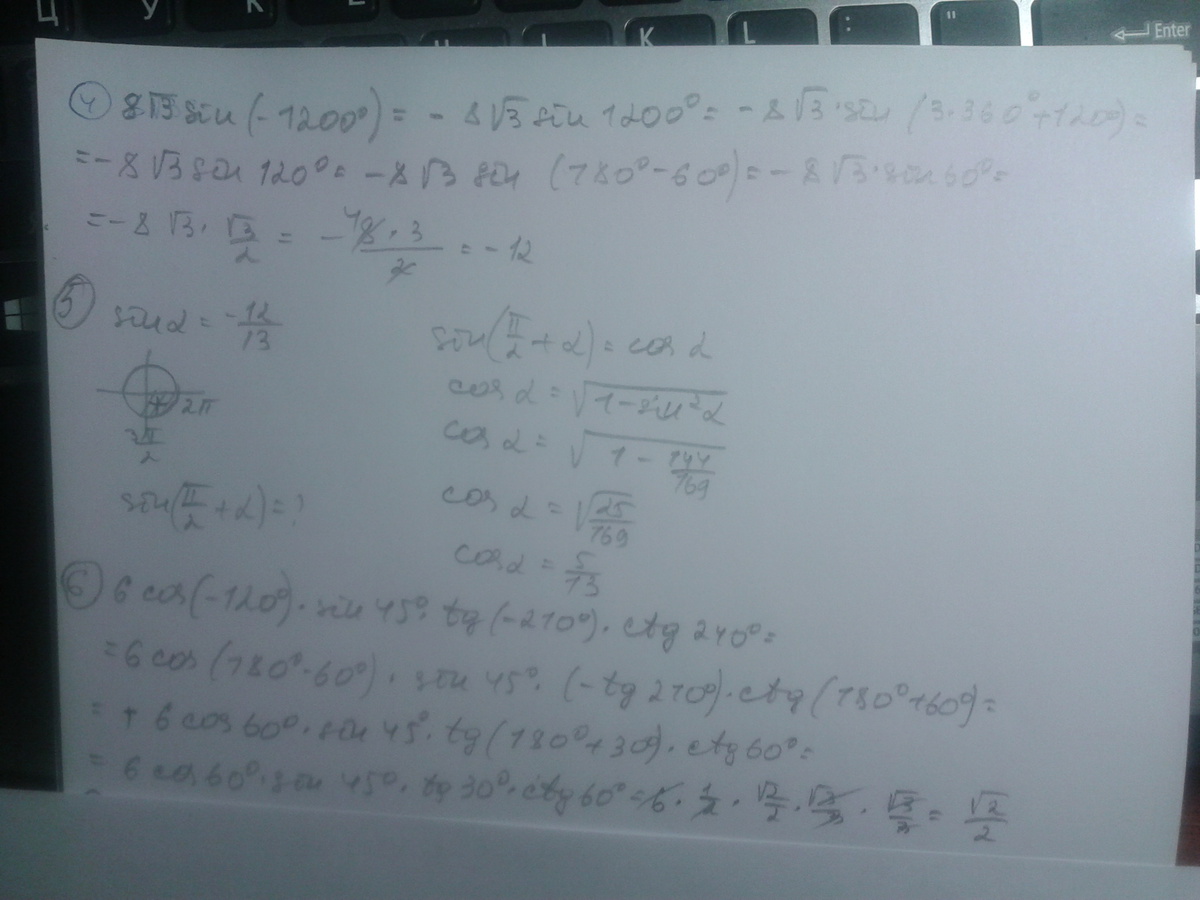 Ц У К
K L : " Enter
④ 8√3 sin (-1200°) = - 8√3 sin 1200° = - 8√3 · sin (3·360°+120°) =
= - 8√3 sin 120° = - 8√3 sin (180°-60°) = - 8√3 · sin 60° =
= - 8√3 · √3/2 = - 4 8·3/2 = - 12
⑤ sin α = -12/13
2π
3π/2
sin(π/2 + α) = ?
sin(π/2 + α) = cos α
cos α = √(1 - sin²α)
cos α = √(1 - 144/169)
cos α = √(25/169)
cos α = 5/13
⑥ 6 cos(-120°) · sin 45° · tg (-210°) · ctg 240° =
= 6 cos (180°-60°) · sin 45° · (-tg 210°) · ctg (180°+60°) =
= + 6 cos 60° · sin 45° · tg (180°+30°) · ctg 60° =
= 6 cos 60° · sin 45° · tg 30° · ctg 60° = 6 · 1/2 · √2/2 · √3/3 · √3/3 = √2/2